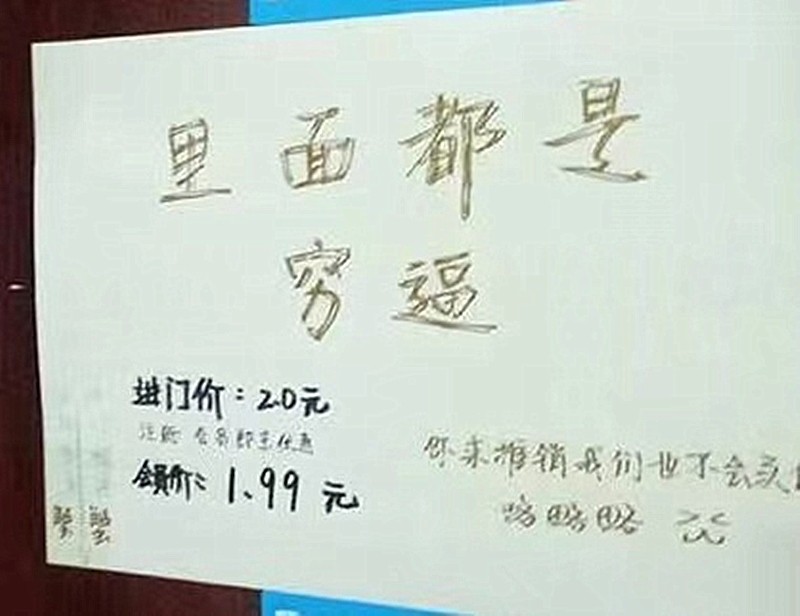 里面都是
穷逼
进门价：2.0元
注册会员即享优惠
会員价：1.99元
你来推销我们也不会买
略略略
蟹蟹